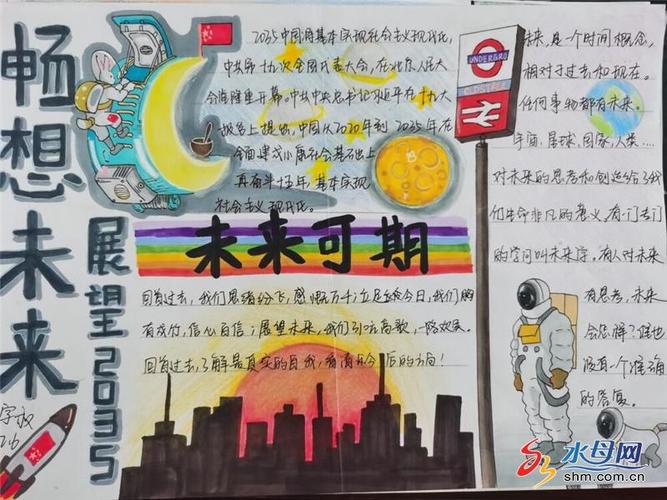 畅想未来
展望2035
2035中国将基本实现社会主义现代化,
中共第十九次全国代表大会,在北京人民大
会堂隆重开幕。中共中央总书记习近平在十九大
报告上提出,中国从2020年到2035年在
全面建成小康社会基础上
再奋斗十五年,基本实现
社会主义现代化。
UNDERGRO
未来,是一个时间概念,
相对于过去和现在。
任何事物都有未来。
宇宙、星球、国家、人类……
对未来的思考和创造给予我
们生命非凡的意义,有一门专门
的学问叫未来学。有人对未来
有思考,未来
会怎样?谁也
没有一个准确
的答复。
未来可期
回首过去,我们思绪纷飞,感慨万千;立足于今日,我们胸
有成竹,信心百倍;展望未来,我们引吭高歌,一路欢笑。
回首过去,了解最真实的自我,看清今后的方向!
水母网
shm.com.cn